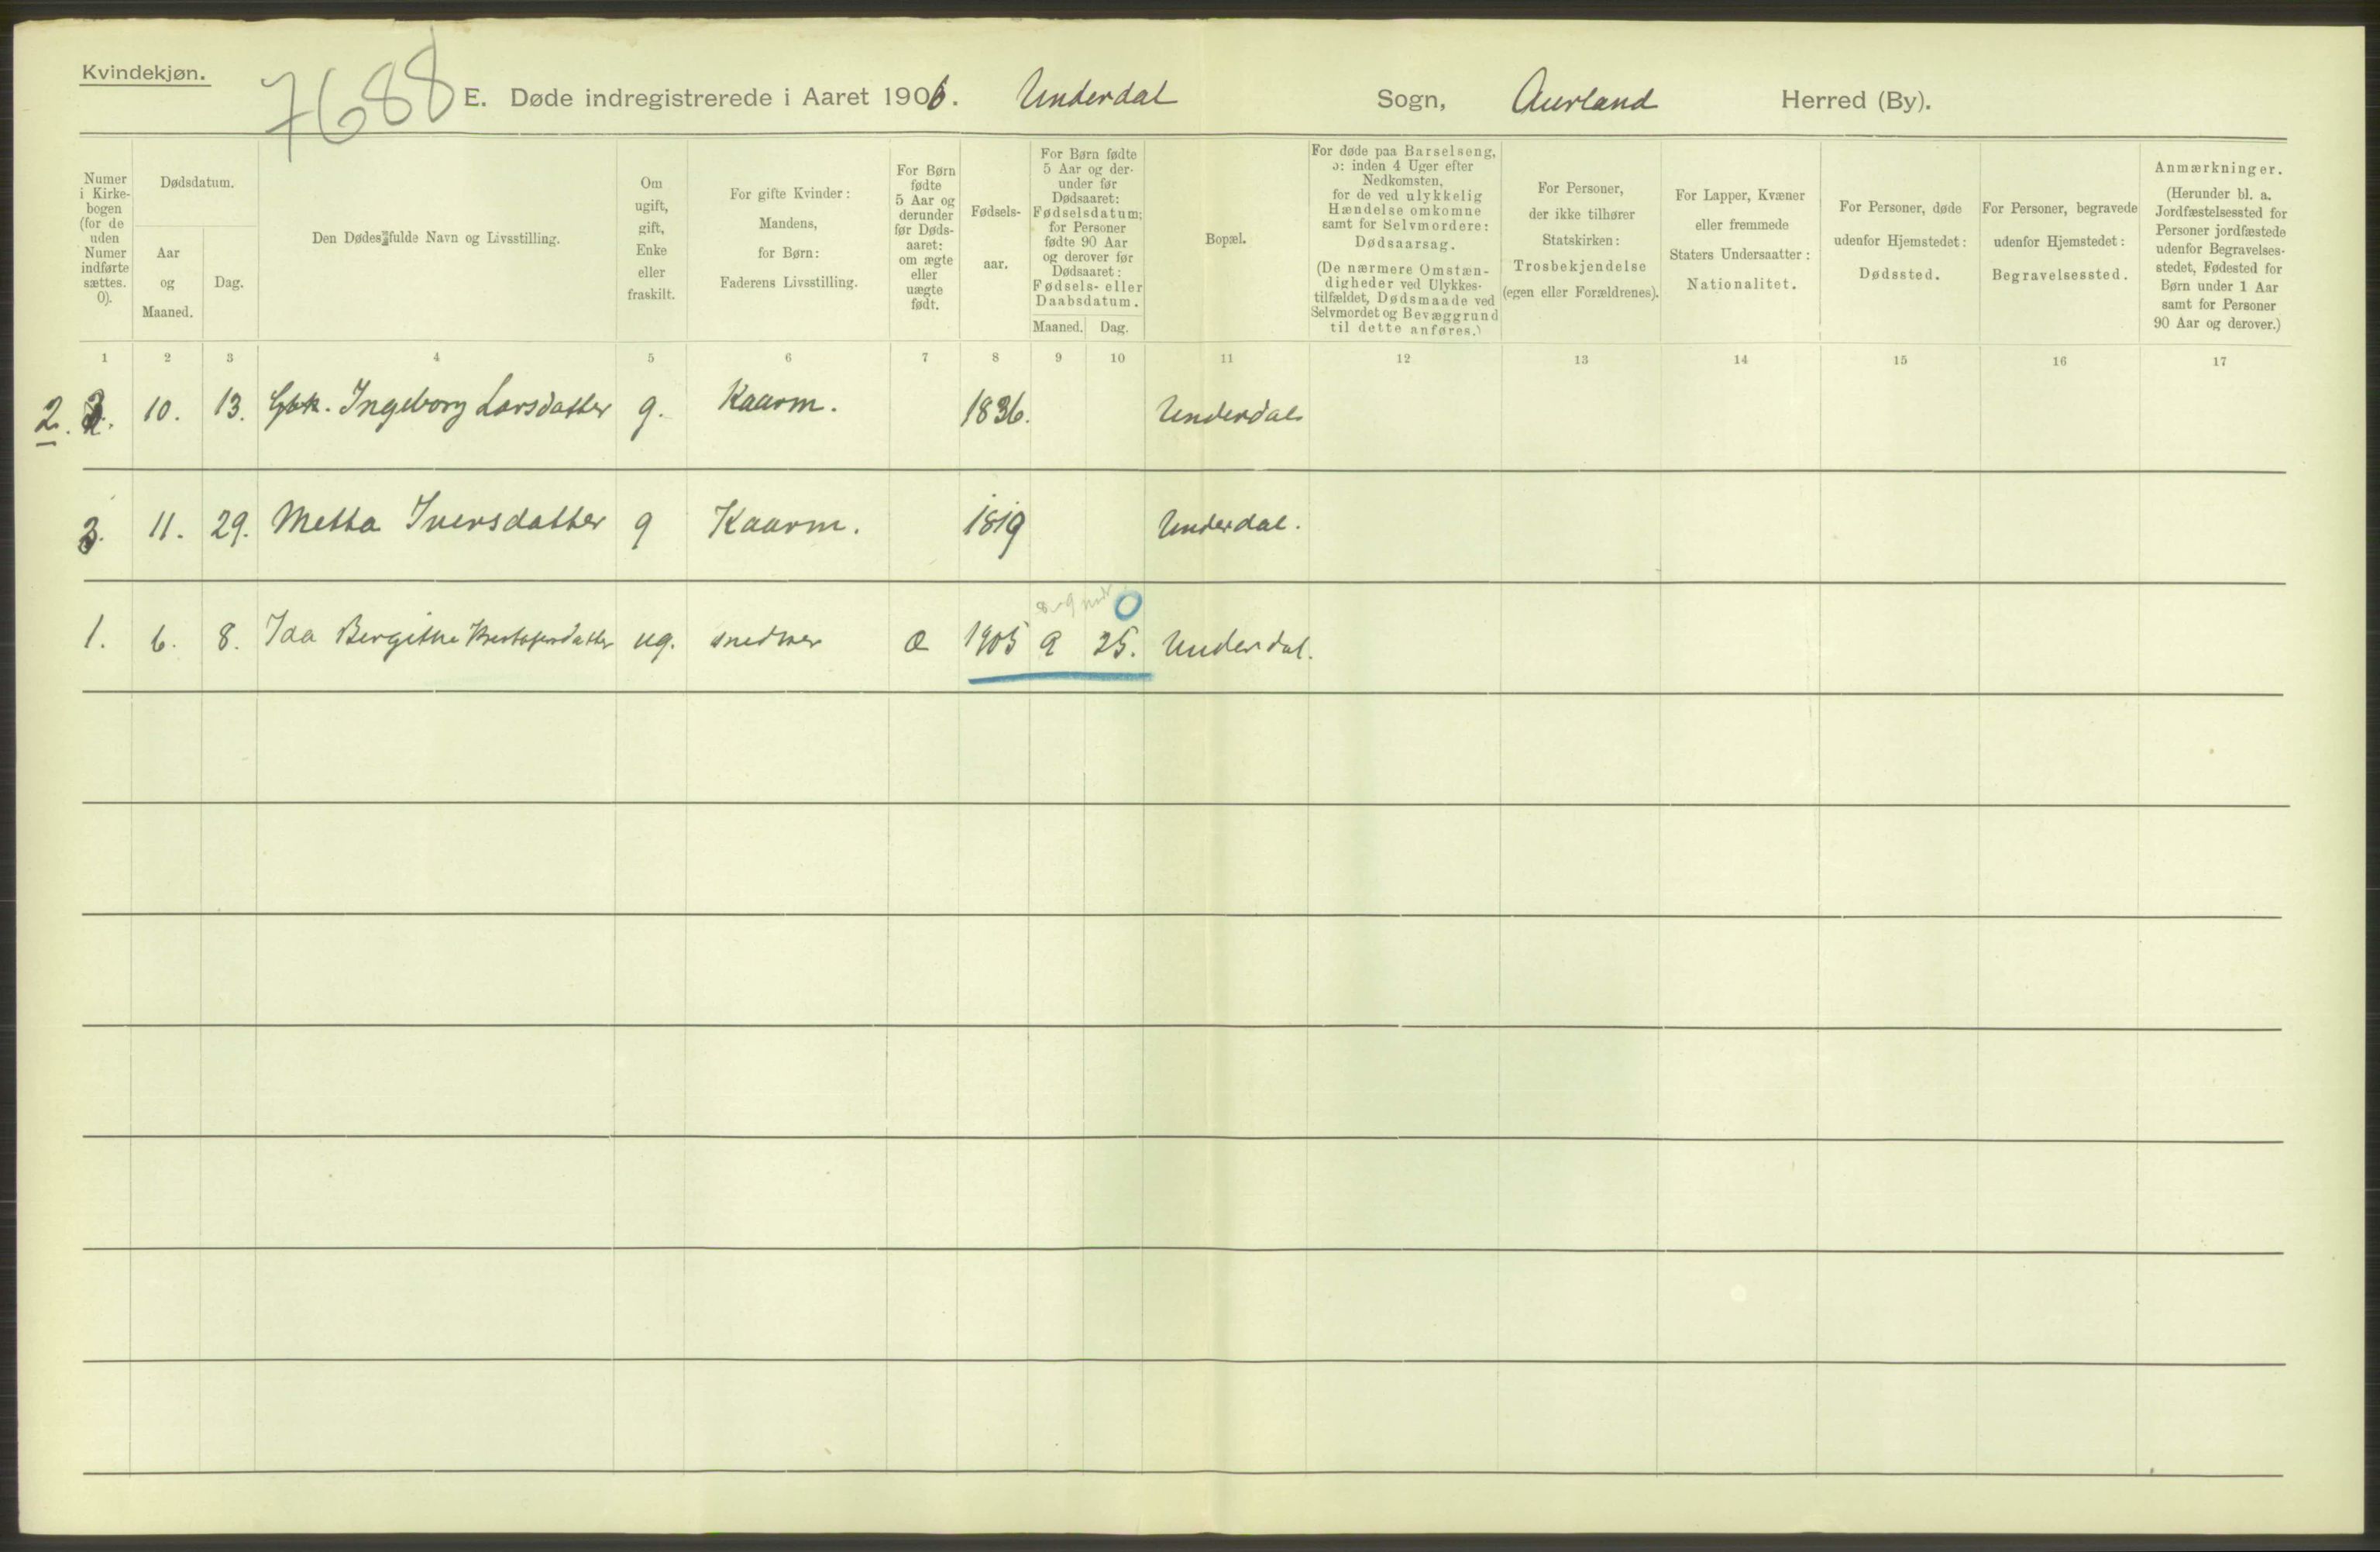 Kvindekjøn.
7688
E. Døde indregistrerede i Aaret 1906. Underdal Sogn, Aurland Herred (By).
Numer i Kirkebogen (for de uden Numer indførte sættes. 0).
Dødsdatum.
Aar og Maaned.
Dag.
Den Dødes fulde Navn og Livsstilling.
Om ugift, gift, Enke eller fraskilt.
For gifte Kvinder: Mandens, for Børn: Faderens Livsstilling.
For Børn fødte 5 Aar og derunder før Dødsaaret: om ægte eller uægte født.
Fødselsaar.
For Børn fødte 5 Aar og derunder før Dødsaaret: Fødselsdatum; for Personer fødte 90 Aar og derover før Dødsaaret: Fødsels- eller Daabsdatum.
Maaned. Dag.
Bopæl.
For døde paa Barselseng, ɔ: inden 4 Uger efter Nedkomsten, for de ved ulykkelig Hændelse omkomne samt for Selvmordere: Dødsaarsag.
(De nærmere Omstændigheder ved Ulykkestilfældet, Dødsmaade ved Selvmordet og Bevæggrund til dette anføres.)
For Personer, der ikke tilhører Statskirken: Trosbekjendelse (egen eller Forældrenes).
For Lapper, Kvæner eller fremmede Staters Undersaatter: Nationalitet.
For Personer, døde udenfor Hjemstedet: Dødssted.
For Personer, begravede udenfor Hjemstedet: Begravelsessted.
Anmærkninger.
(Herunder bl. a. Jordfæstelsessted for Personer jordfæstede udenfor Begravelsesstedet, Fødested for Børn under 1 Aar samt for Personer 90 Aar og derover.)
1 2 3 4 5 6 7 8 9 10 11 12 13 14 15 16 17
2. 10. 13. Gbk. Ingeborg Larsdatter g. Kaarm. 1836. Underdal
3. 11. 29. Metta Iversdatter g Kaarm. 1819 Underdal.
0
1. 6. 8. Ida Bergithe ug. snedker Æ 1905 9 25. Underdal.